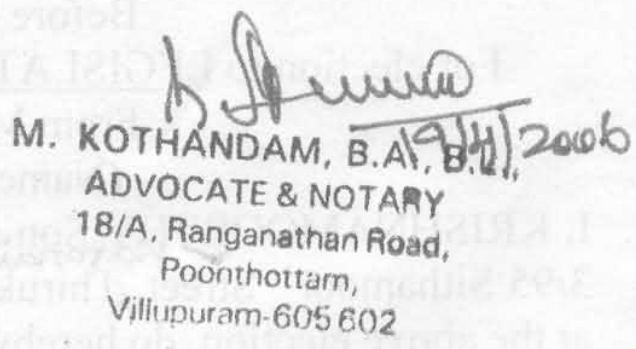 19/4/2006
M. KOTHANDAM, B.A., B.L.,
ADVOCATE & NOTARY
18/A, Ranganathan Road,
Poonthottam,
Villupuram-605 602